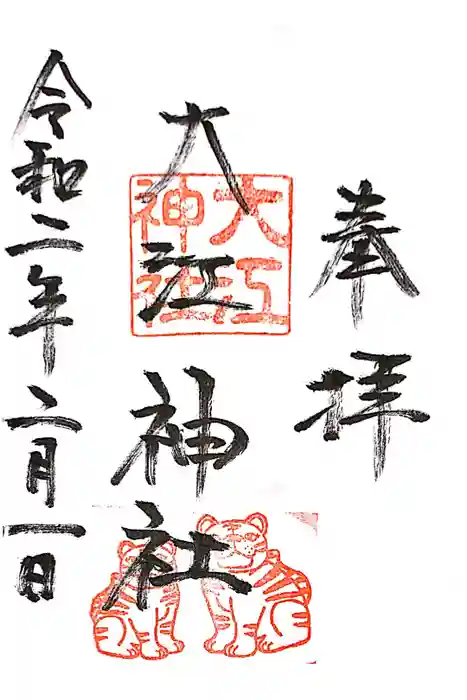 奉拝
大江神社
大江
神社
令和二年六月一日